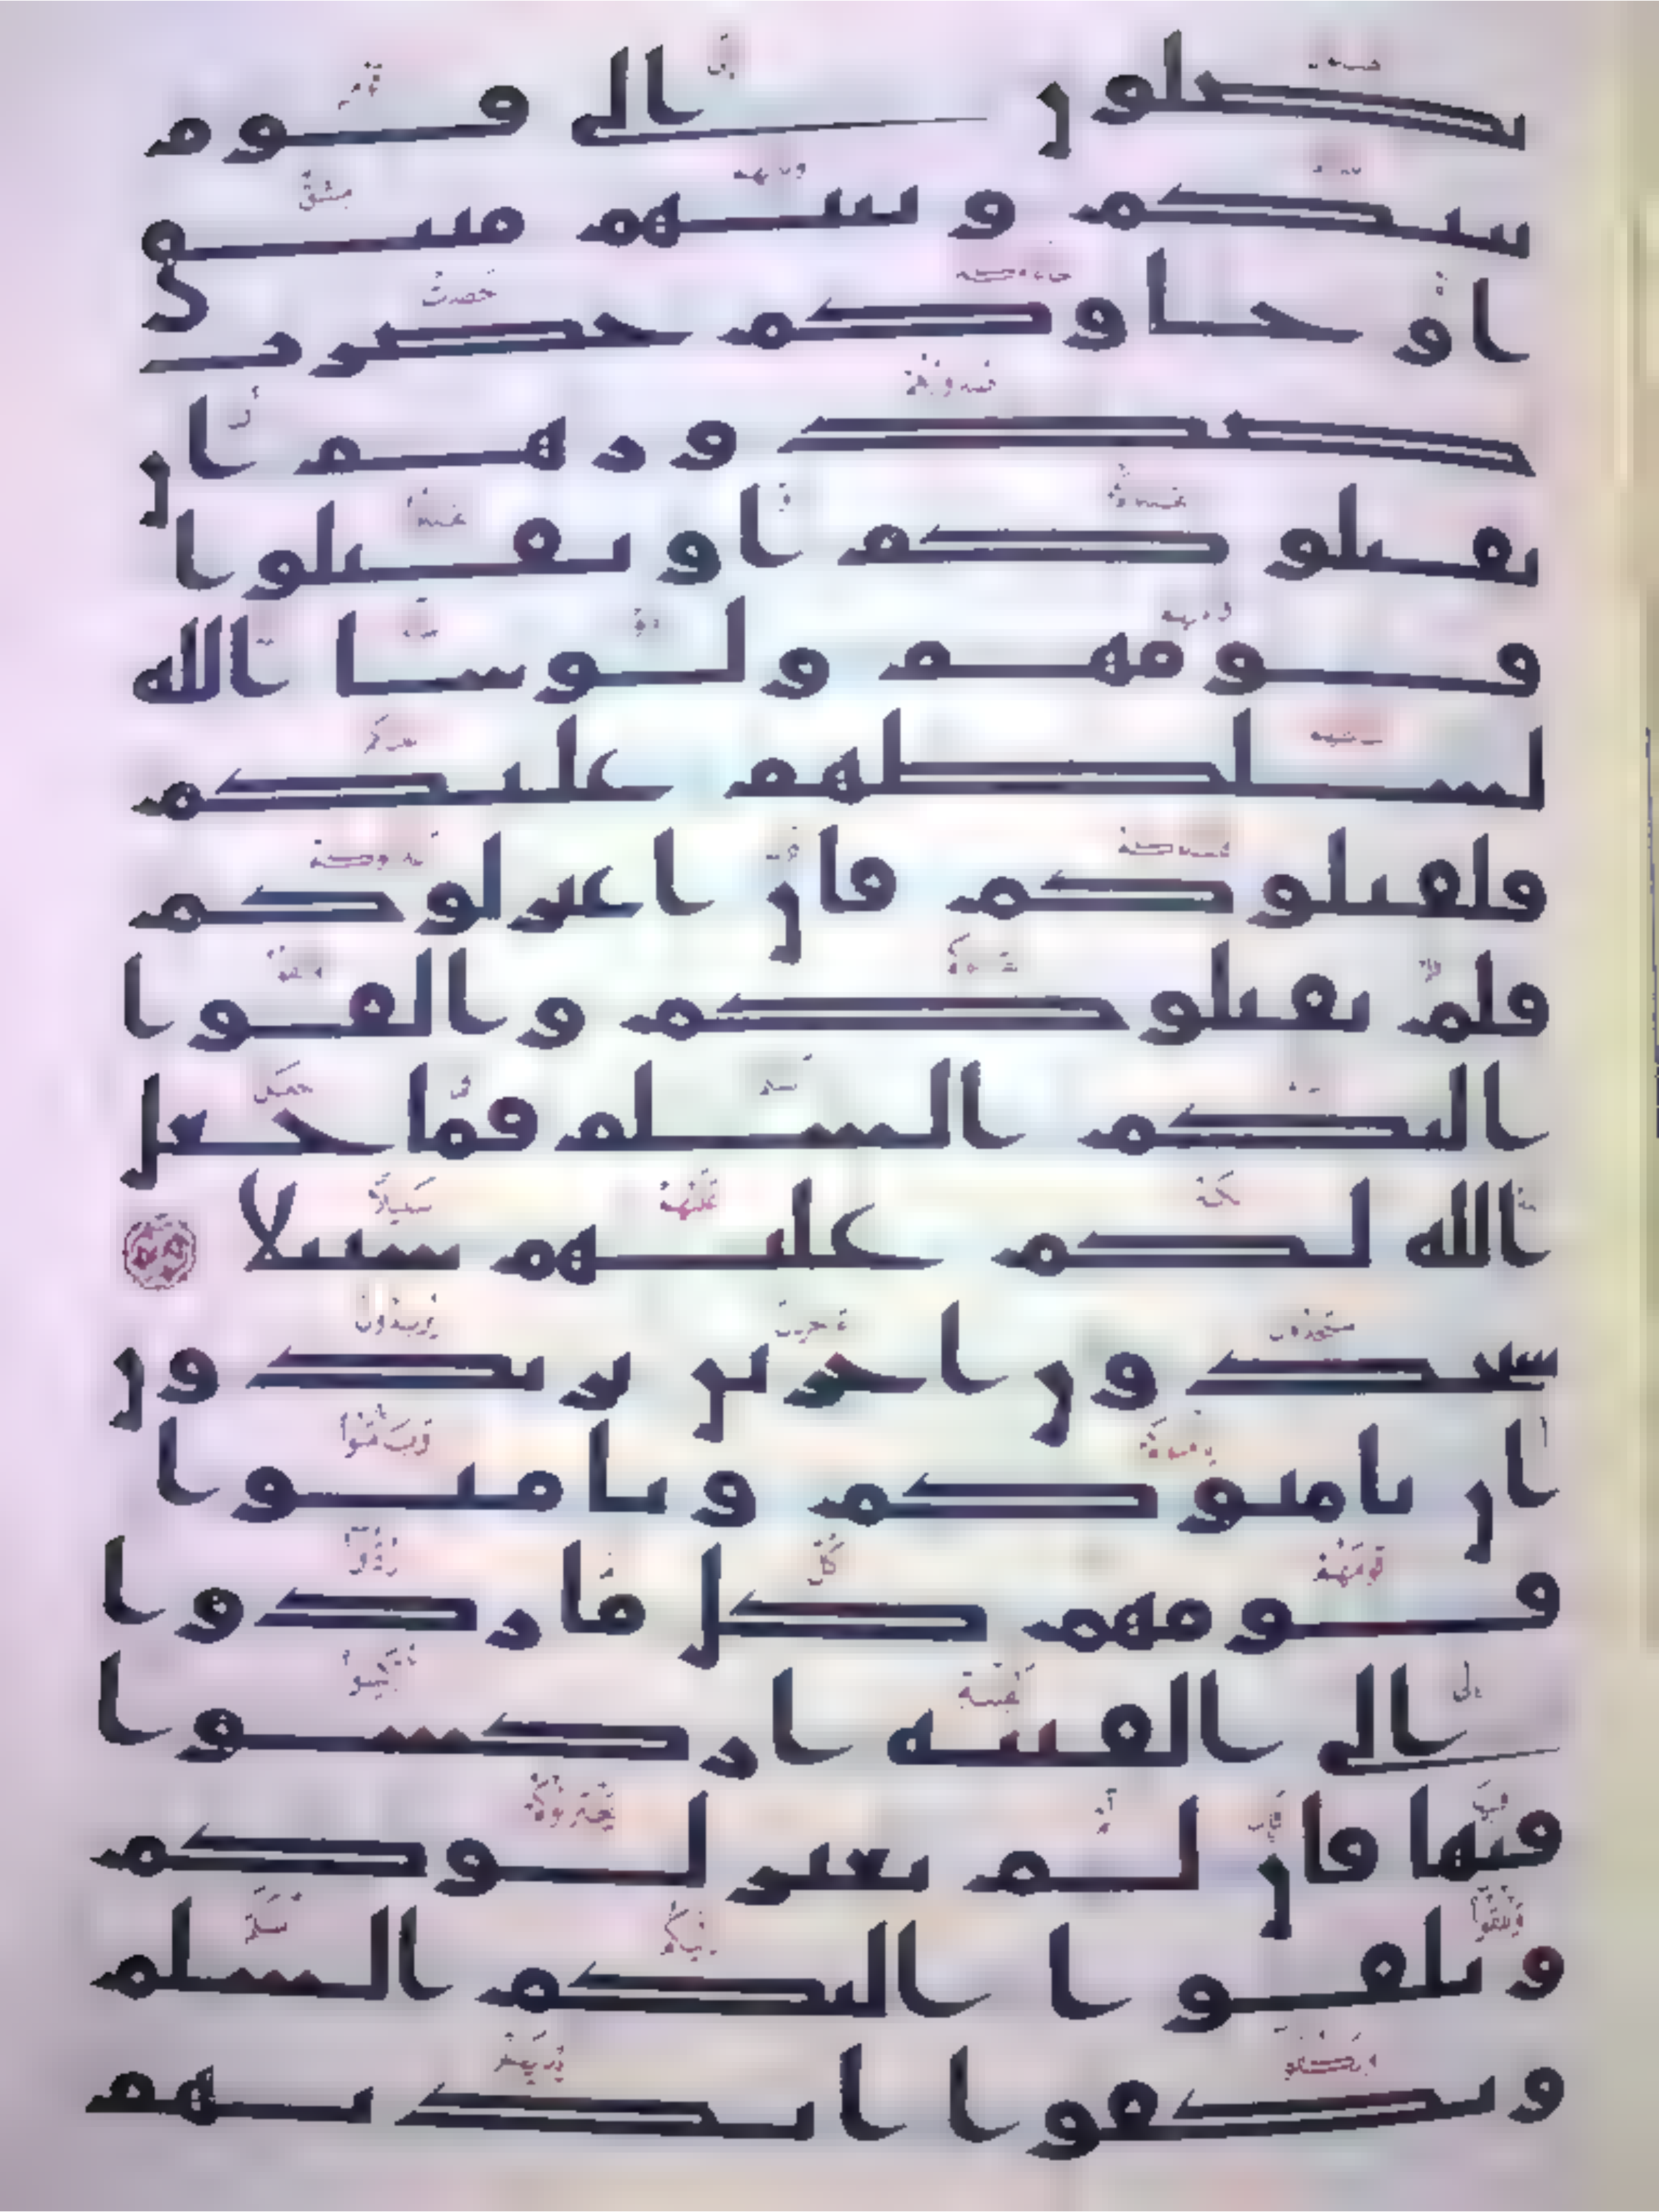 يصلون الى قوم
بينكم وبينهم ميثق
او جاوكم حصرت
صدورهم ان
يقتلوكم او يقتلوا
قومهم ولو شا الله
لسلطهم عليكم
فلقتلوكم فان اعتزلوكم
فلم يقتلوكم والقوا
اليكم السلم فما جعل
الله لكم عليهم سبيلا
ستجدون اخرين يريدون
ان يامنوكم ويامنوا
قومهم كل ما ردوا
الى الفتنه اركسوا
فيها فان لم يعتزلوكم
ويلقوا اليكم السلم
ويكفوا ايديهم